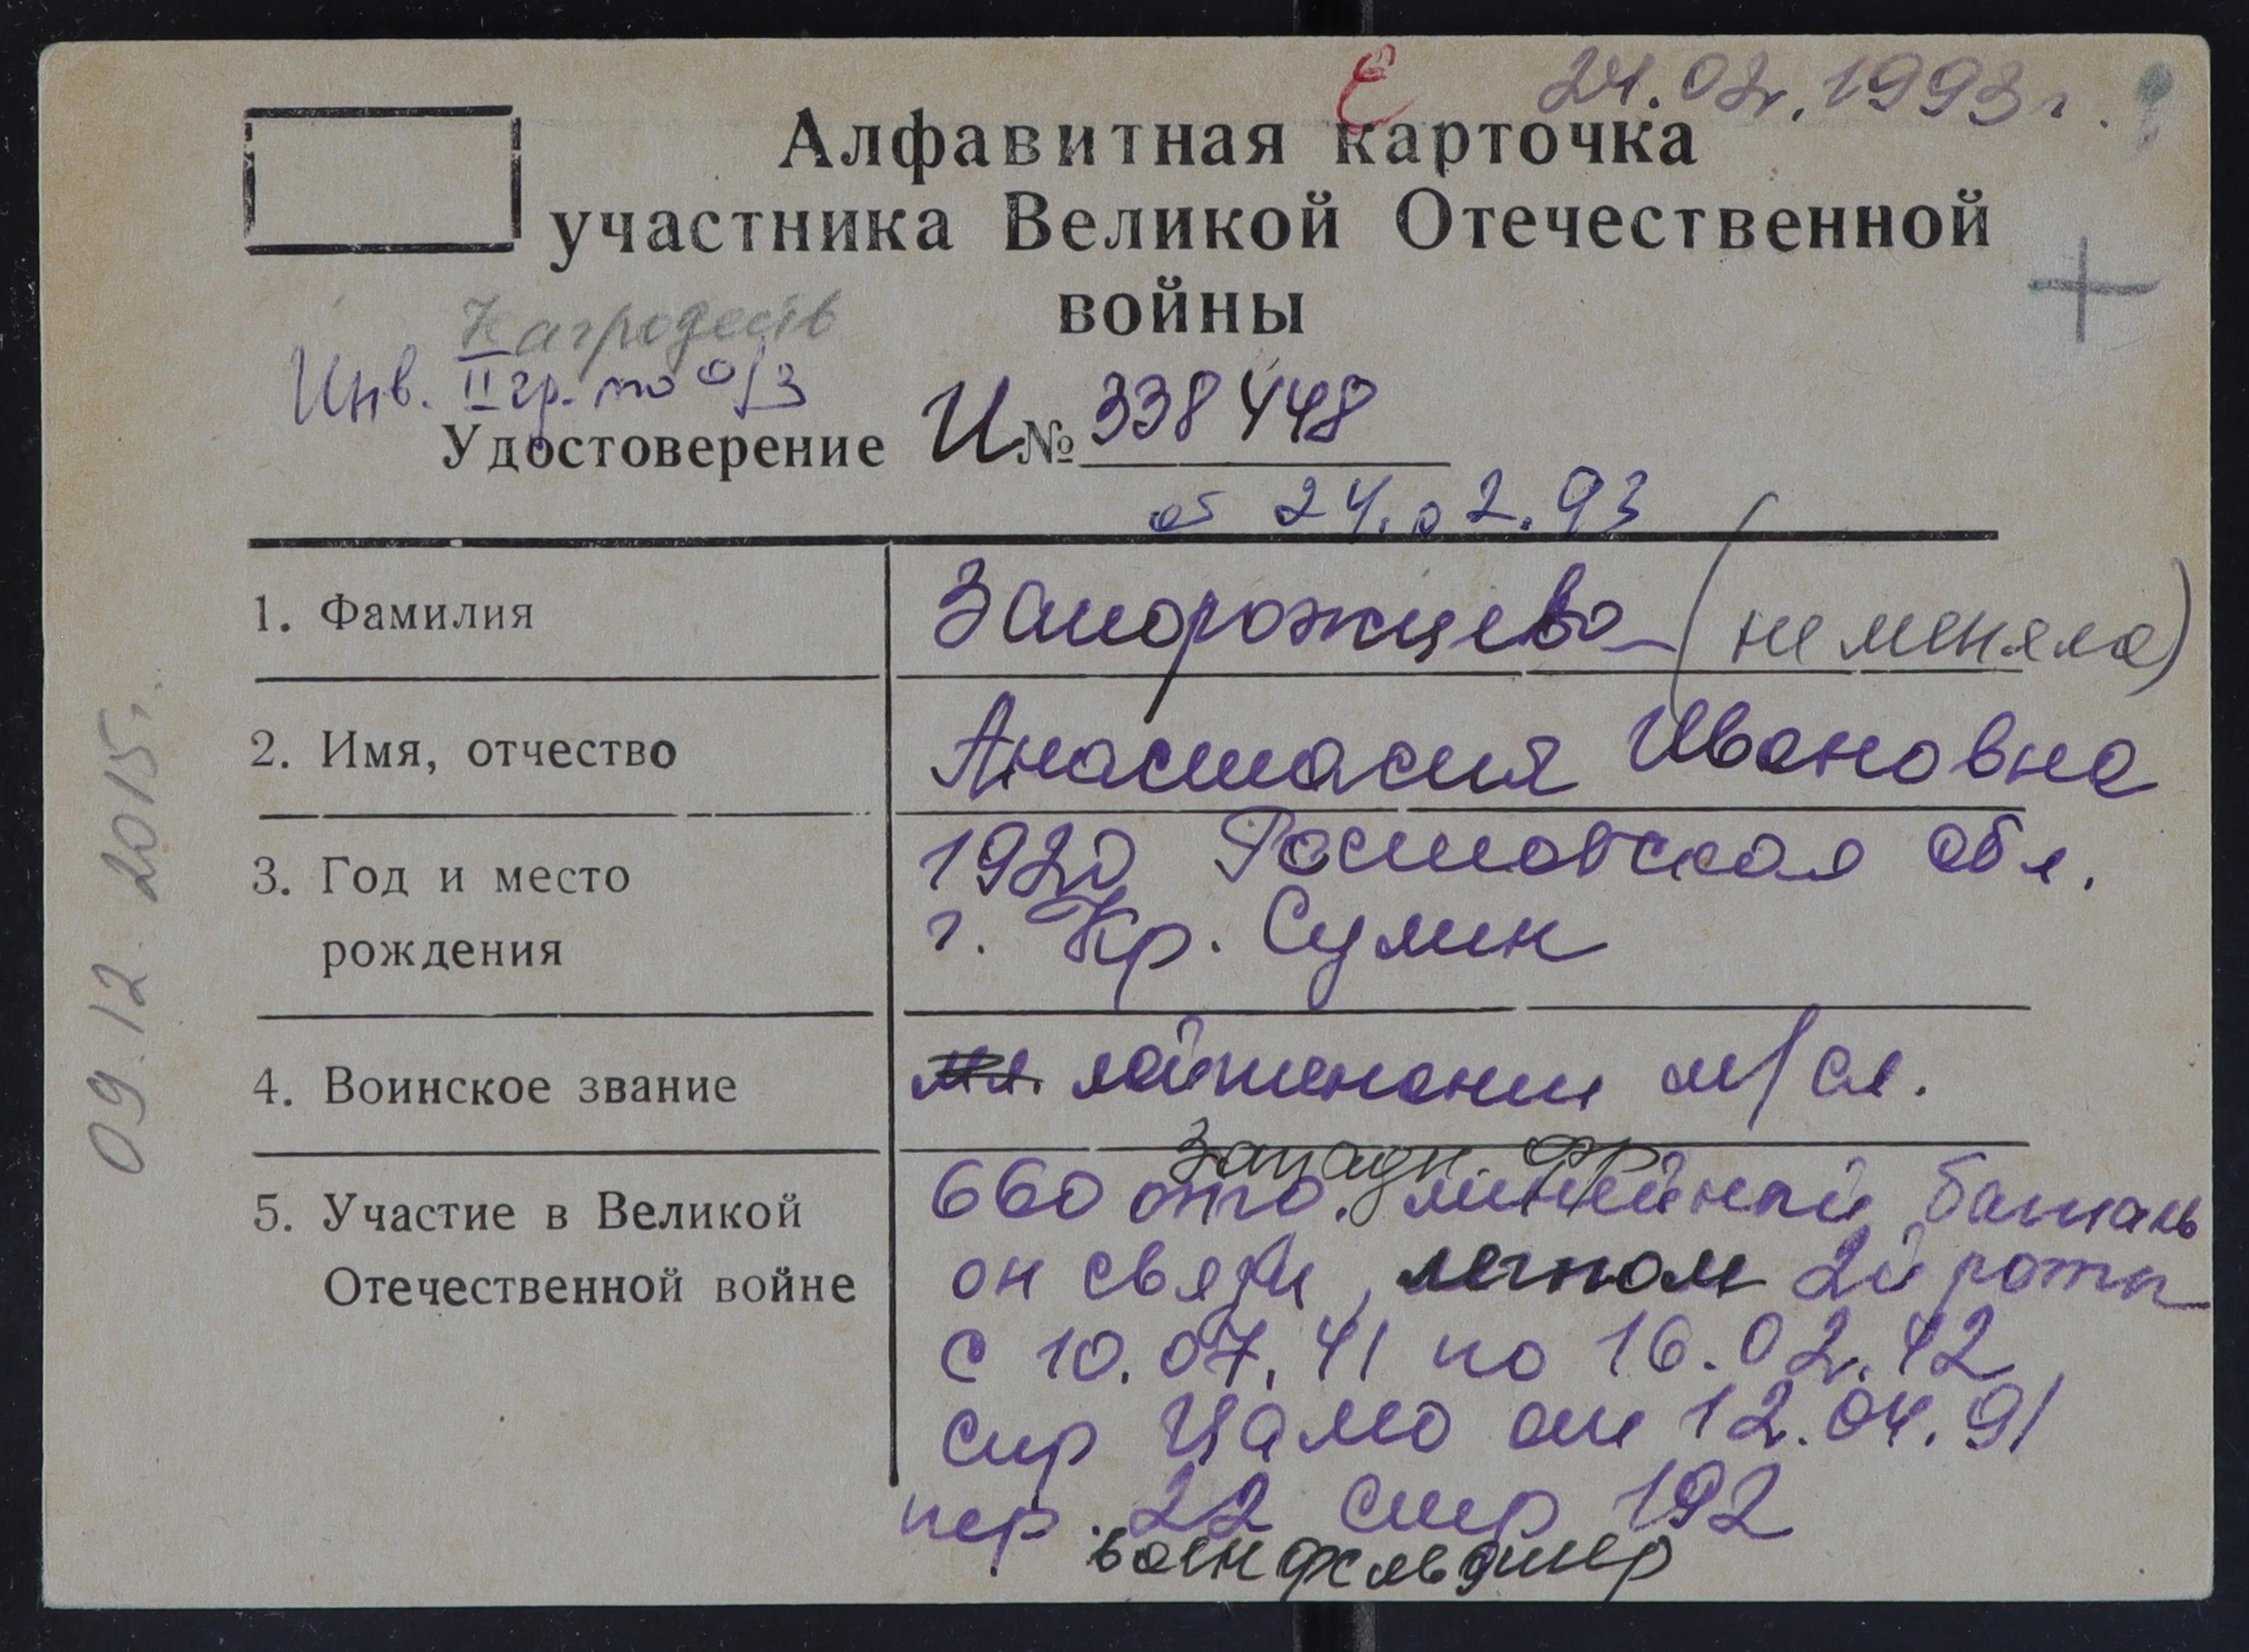 Е 24.02.1993г.
Алфавитная карточка
участника Великой Отечественной
войны
Наград есть
Инв. II гр. по о/з
Удостоверение И № 338448
от 24.02.93
1. Фамилия Запорожцева (не меняла)
2. Имя, отчество Анастасия Ивановна
3. Год и место 1920 Ростовская обл.
рождения г. Кр. Сулин
4. Воинское звание мл. лейтенант м/сл.
Западн. фр
5. Участие в Великой 660 отд. линейный баталь
Отечественной войне он связи, 2й роты
с 10.07.41 по 16.02.42
спр ЦАМО от 12.04.91
пер. 22 стр 192
военфельдшер
09.12.2015г.